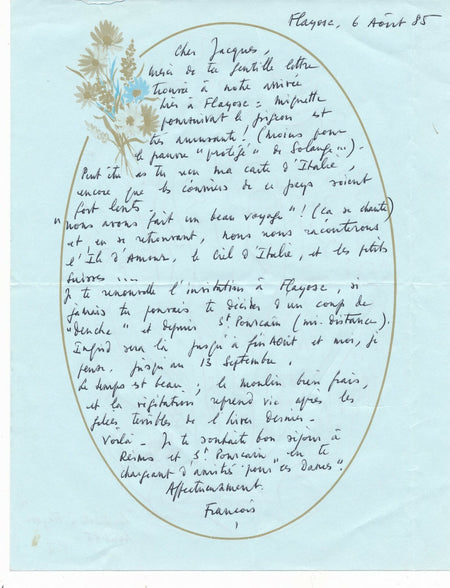 Flayosc, 6 Août 85
Cher Jacques,
merci de ta gentille lettre
trouvée à notre arrivée
hier à Flayosc : Mignette
poursuivant le pigeon est
très amusante ! (moins pour
le pauvre "protégé" de Solange...) -
Peut être as tu reçu ma carte d'Italie,
encore que les courriers de ce pays soient
fort lents.
"nous avons fait un beau voyage" ! (ça se chante)
et, en se retrouvant, nous nous raconterons
l'Ile d'Amour, le Ciel d'Italie, et les petits
suisses ....
Je te renouvelle l'invitation à Flayosc, si
jamais tu pouvais te décider d'un coup de
"deuche" et depuis St Pourcain (mi-distance).
Ingrid sera là jusqu'à fin Août et moi, je
pense, jusqu'au 13 Septembre.
Le temps est beau ; le moulin bien frais,
et la végétation reprend vie après les
gelées terribles de l'hiver dernier -
Voilà - Je te souhaite bon séjour à
Reims et St Pourcain en te
chargeant d'amitiés "pour ces Dames".
Affectueusement.
François